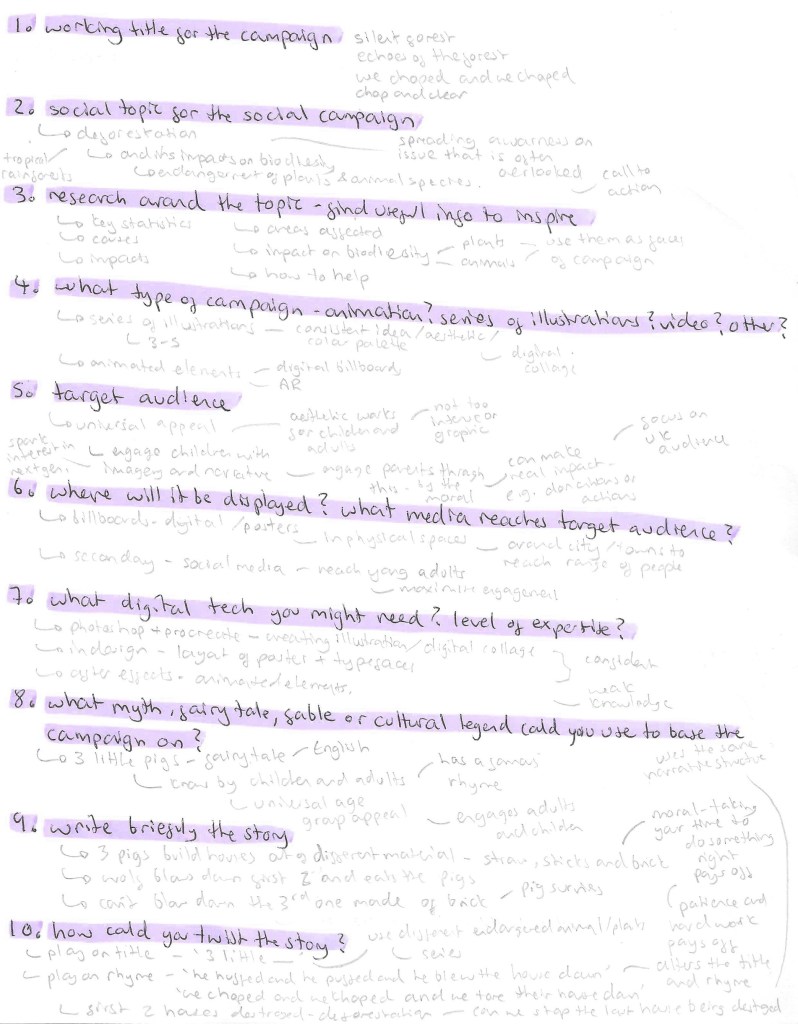 1. working title for the campaign
silent forest
echoes of the forest
we choped and we choped
chop and clear
2. social topic for the social campaign
↳ deforestation
spreading awarness on
issue that is often
overlooked
call to
action
tropical/
rainforests
↳ and its impacts on biodiesty
↳ endangerment of plants & animal species.
3. research around the topic - find useful info to inspire
↳ key statistics
↳ causes
↳ impacts
↳ areas affected
↳ impact on biodiesity
plants
animals
use them as faces
of campaign
↳ how to help
4. what type of campaign - animation? series of illustrations? video? other?
↳ series of illustrations - consistent idea/aesthetic/
color palette
↳ 3-5
digital
collage
↳ animated elements - digital billboards
- AR
5. target audience
↳ universal appeal
aesthetic works
for children and
adults
not too
intense or
graphic
focus on
UK
audience
spark
interest in
next gen.
↳ engage children with
imagery and narrative
engage parents through
this - by the
moral
can make
real impact -
e.g. donations or
actions
6. where will it be displayed? what media reaches target audience?
↳ billboards - digital / posters
in physical spaces
around city/towns to
reach range of people
↳ secondary - social media - reach young adults
maximise engagement
7. what digital tech you might need? level of expertise?
↳ photoshop + procreate - creating illustration/digital collage
↳ indesign - layout of poster + typefaces
confident
↳ after effects - animated elements.
weak
knowledge
8. what myth, fairy tale, fable or cultural legend could you use to base the
campaign on?
↳ 3 little pigs - fairytale - English
↳ know by children and adults
has a famous
rhyme
↳ universal age
group appeal
engages adults
and children
uses the same
narrative structure
9. write briefuly the story
↳ 3 pigs build houses out of different material - straw, sticks and brick
↳ wolf blows down first 2 and eats the pigs
↳ can't blow down the 3rd one made of brick
pig survives
moral - taking
your time to
do something
right
pays off
patience and
hard work
pays off
10. how could you twist the story?
use different endangered animal/plants
series
↳ play on title - '3 little ___'
↳ play on rhyme - 'he huffed and he puffed and he blew the house down'
'we choped and we choped and we tore their house down'
alters the title
and rhyme
↳ first 2 houses destroyed - deforestation - can we stop the last house being destroyed